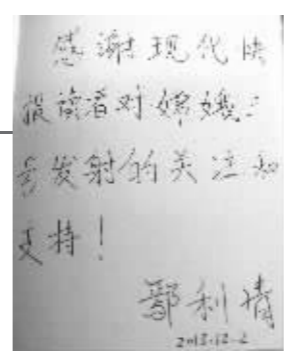 感谢现代快
报读者对嫦娥三
号发射的关注和
支持!
鄢利清
2013-12-2